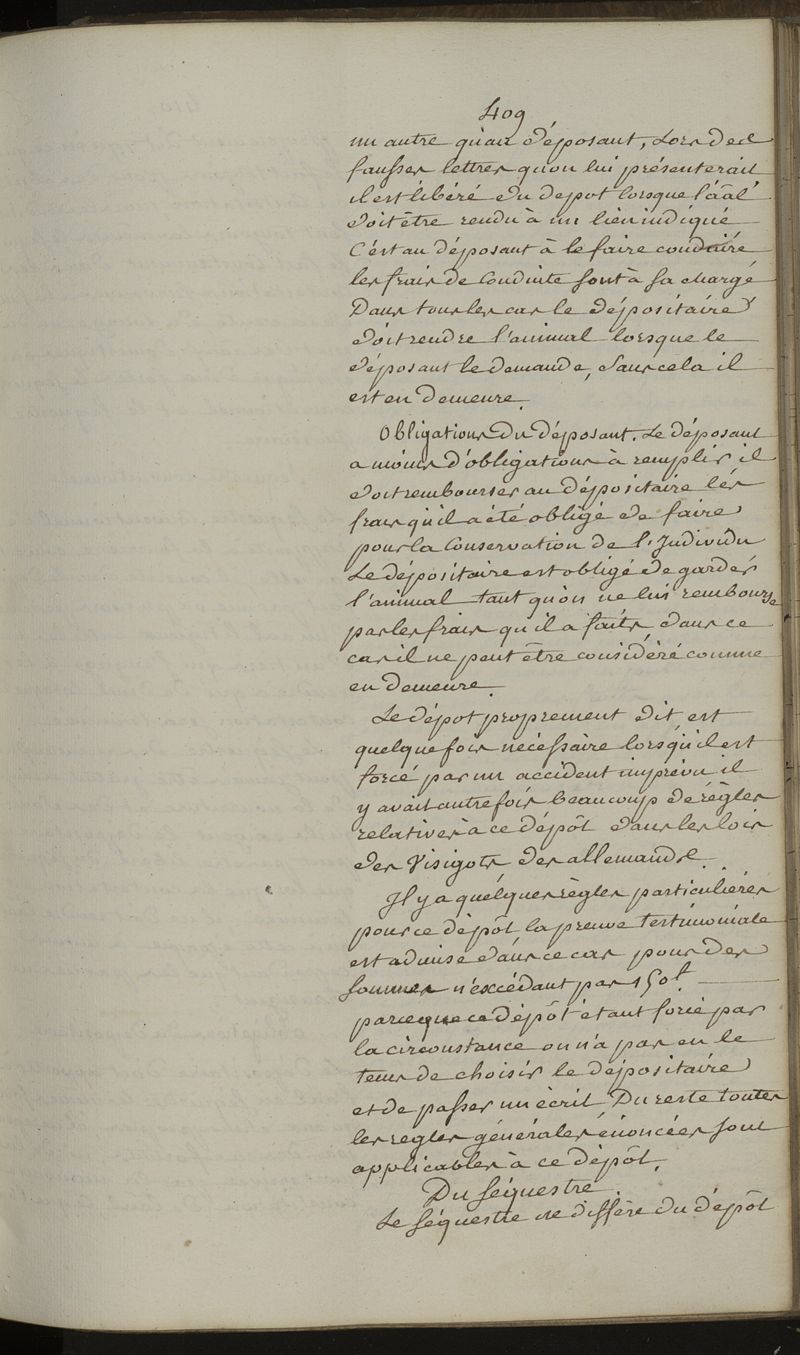 409
un autre qu'au déposant, Lors de
fausses lettres qu'on lui présenterait
il est libéré du depot lorsque l'aâl
doit être rendu à un lieu indiqué
C'est au déposant à le faire conduire
les frais de Conduite sont à sa chargé
Dans tous les cas le dépositaire
doit rendre l'animal lorsque le
déposant le demande, sans cela il
est en demeure.
Obligations du déposant. Le déposant
a moins d'obligations à remplir il
doit rembourser au dépositaire les
frais qu'il a été obligé de faire
pour la Conservation de l'Individu
Le dépositaire est obligé de garder
l'animal tant qu'on ne lui rembourse
pas les frais qu'il a faits, dans ce
cas il ne peut être considéré comme
en demeure.
Le dépot proprement dit est
quelque fois nécessaire lorsqu'il est
forcé par un accident imprévu il
y avait autre fois beaucoup de règles
relatives à ce dépôt dans les lois
des Visigots des allemands.
Il y a quelques règles particulières
pour ce dépôt, la preuve testimoniale
est admise dans ce cas pour des
sommes n'excédant pas 150f
parceque ce dépôt étant forcé par
la circonstance on n'a pas eu le
tems de choisir le dépositaire
et de passer un écrit Du reste toutes
les regles générales énoncées sont
applicables à ce dépôt.
Du séquestre.
Le séquestre ne diffère du dépôt